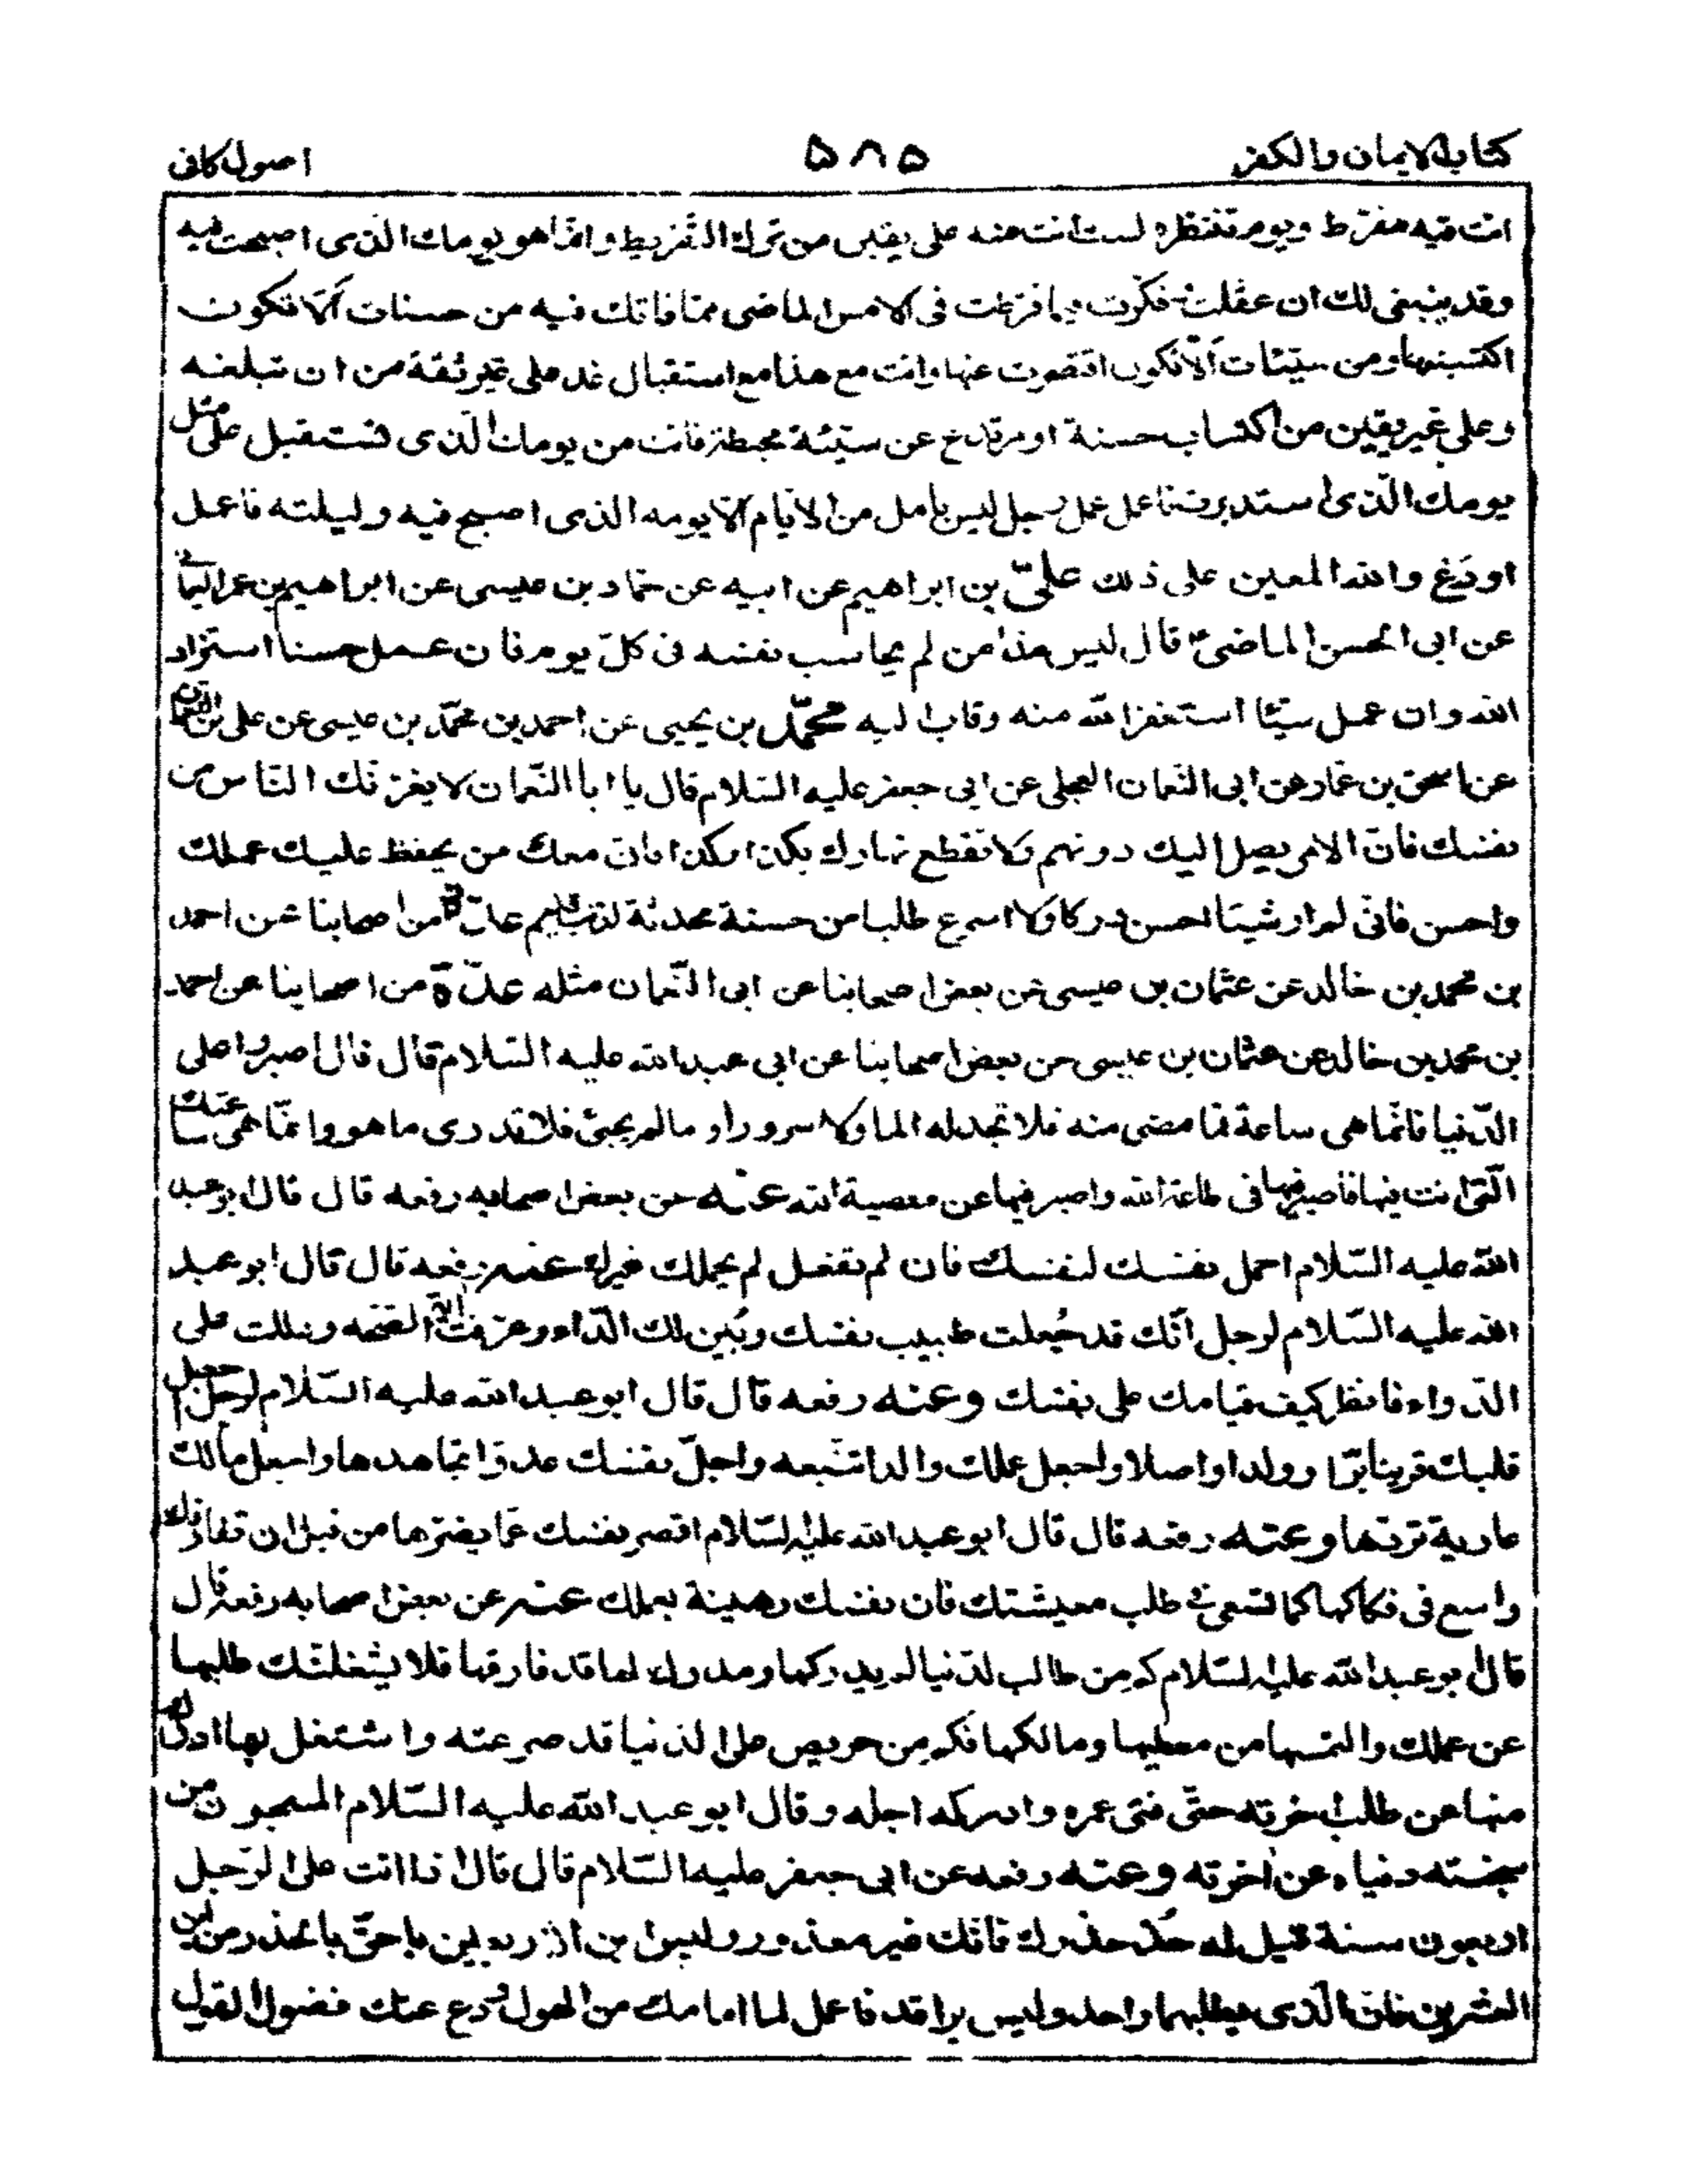 كتاب الايمان والكفر ۵۸۵ اصول كافى
انت فيه مفرّط ويوم تنتظره لست انت منه على يقين من ترك التفريط وانما هو يومك الذى اصبحت فيه
وقد ينبغى لك ان عقلت وفكّرت فيما فرّطت فى الامس الماضى ممّا فاتك فيه من حسنات ألّا تكون
اكتسبتها ومن سيّئات ألّا تكون اقتصرت عنها وانت مع هذا مع استقبال غد على غير ثقة من ان تبلغه
وعلى غير يقين من اكتساب حسنة او مرتدع عن سيّئة محبطة فانت من يومك الّذى تستقبل على مثل
يومك الّذى استدبرت فاعمل عمل رجل ليس يأمل من الايّام الّا يومه الذى اصبح فيه وليلته فاعمل
او دَع والله المعين على ذلك علىّ بن ابراهيم عن ابيه عن حمّاد بن عيسى عن ابراهيم بن عمر اليمانى
عن ابى الحسن الماضىؑ قال ليس منّا من لم يحاسب نفسه فى كلّ يوم فان عمل حسنا استزاد
الله وان عمل سيّئا استغفر الله منه وتاب اليه محمّد بن يحيى عن احمد بن محمّد بن عيسى عن على بن النعمان
عن اسحق بن عمّار عن ابى النّعمان العجلى عن ابى جعفر عليه السّلام قال يا ابا النّعمان لا يغرّنّك النّاس من
نفسك فانّ الامر يصل اليك دونهم ولا تقطع نهارك بكذا وكذا فان معك من يحفظ عليك عملك
واحسن فانّى لم ار شيئا احسن دركا ولا اسرع طلبا من حسنة محدثة لذنب قديم عدّة من اصحابنا عن احمد
بن محمد بن خالد عن عثمان بن عيسى عن بعض اصحابنا عن ابى النّعمان مثله عدّة من اصحابنا عن احمد
بن محمد بن خالد عن عثمان بن عيسى عن بعض اصحابنا عن ابى عبد الله عليه السّلام قال قال اصبروا على
الدّنيا فانّما هى ساعة فما مضى منه فلا تجد له الما ولا سرورا وما لم يجئ فلا تدرى ما هو وانّما هى ساعتك
الّتى انت فيها فاصبر فيها فى طاعة الله واصبر فيها عن معصية الله عنه عن بعض اصحابه رفعه قال قال ابو عبد
الله عليه السّلام احمل نفسك لنفسك فان لم تفعل لم يحملك غيرك عنه رفعه قال قال ابو عبد
الله عليه السّلام لرجل انّك قد جُعلت طبيب نفسك وبُيّن لك الدّاء وعرّفت اٰية الصّحّه ودللت على
الدّواء فانظر كيف قيامك على نفسك وعنه رفعه قال قال ابو عبد الله عليه السّلام لرجل اجعل
قلبك قرينا برّا وولدا واصلا واجعل عملك والدا تتّبعه واجعل نفسك عدوّا تجاهدها واجعل مالك
عارية تردّها وعنه رفعه قال قال ابو عبد الله عليه السّلام اقصر نفسك عمّا يضرّها من قبل ان تفارقك
واسع فى فكاكها كما تسعى فى طلب معيشتك فان نفسك رهينة بعملك عنه عن بعض اصحابه رفعه قال
قال ابو عبد الله عليه السّلام كم من طالب لدّنيا لم يدركها ومدرك لها قد فارقها فلا يشغلنّك طلبها
عن عملك والتمسها من معطيها ومالكها فكم من حريص على الدّنيا قد صرعته واشتغل بما ادرك
منها عن طلب اخرته حتّى فنى عمره وادركه اجله وقال ابو عبد الله عليه السّلام المسجون من
سجنته دنياه عن اخرته وعنه رفعه عن ابى جعفر عليه السّلام قال قال اذا انت على الرّجل
اربعون سنة قيل له خُذ حذرك فانّك غير معذور وليس ابن الاربعين باحقّ بالحذر من ابن
العشرين فان الّذى يطلبهما واحد وليس براقد فاعمل لما امامك من الهول ودع عنك فضول القول